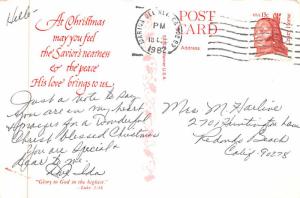 Hello -
At Christmas
may you feel
the Savior's nearness
& the peace
His love brings to us.
Just a note to say
you are in my heart
& prayers for a Wonderful
Christ blessed Christmas
You are Special &
Dear to me.
"Glory to God in the highest."
- Luke 2:14
POST
CARD
Address
PM
1982
USA 13c
Mrs M Harline
2701 Huntington Lane
Redondo Beach
Calif 90278